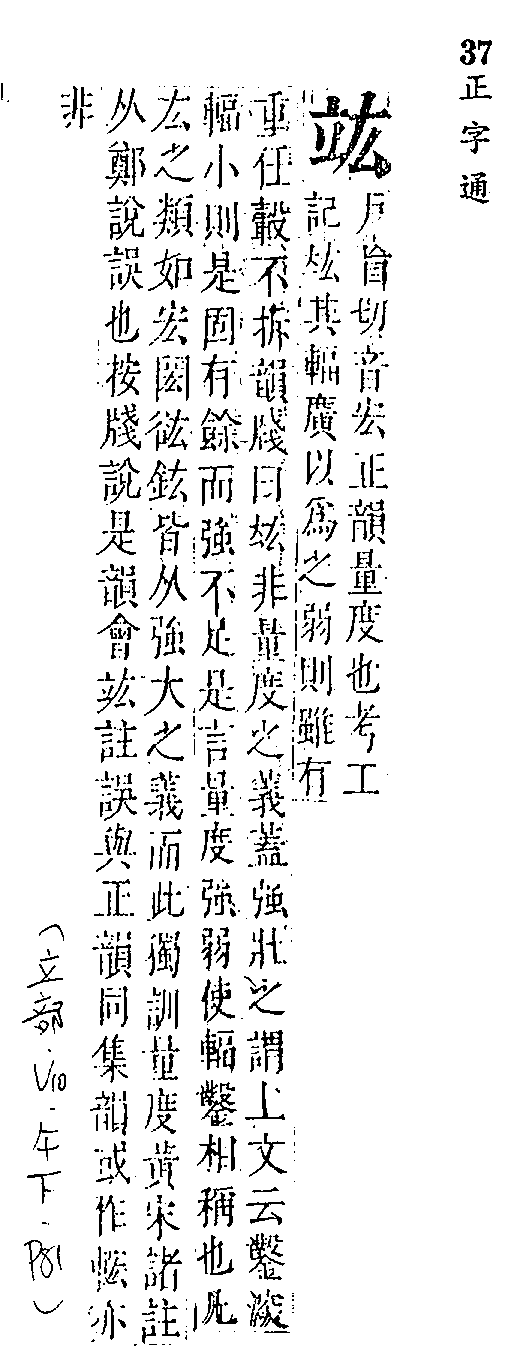 37正字通
竑
戶盲切音宏正韻量度也考工
記竑其輻廣以爲之弱則雖有
重任轂不折韻牋曰竑非量度之義蓋強壯之謂上文云鑿深
輻小則是固有餘而強不足是言量度強弱使輻鑿相稱也凡
厷之類如宏閎紘鈜皆从強大之義而此獨訓量度黃宋諸註
从鄭說誤也按牋說是韻會竑註誤與正韻同集韻或作𢙼亦
非
(立部.V10.午下.P81)